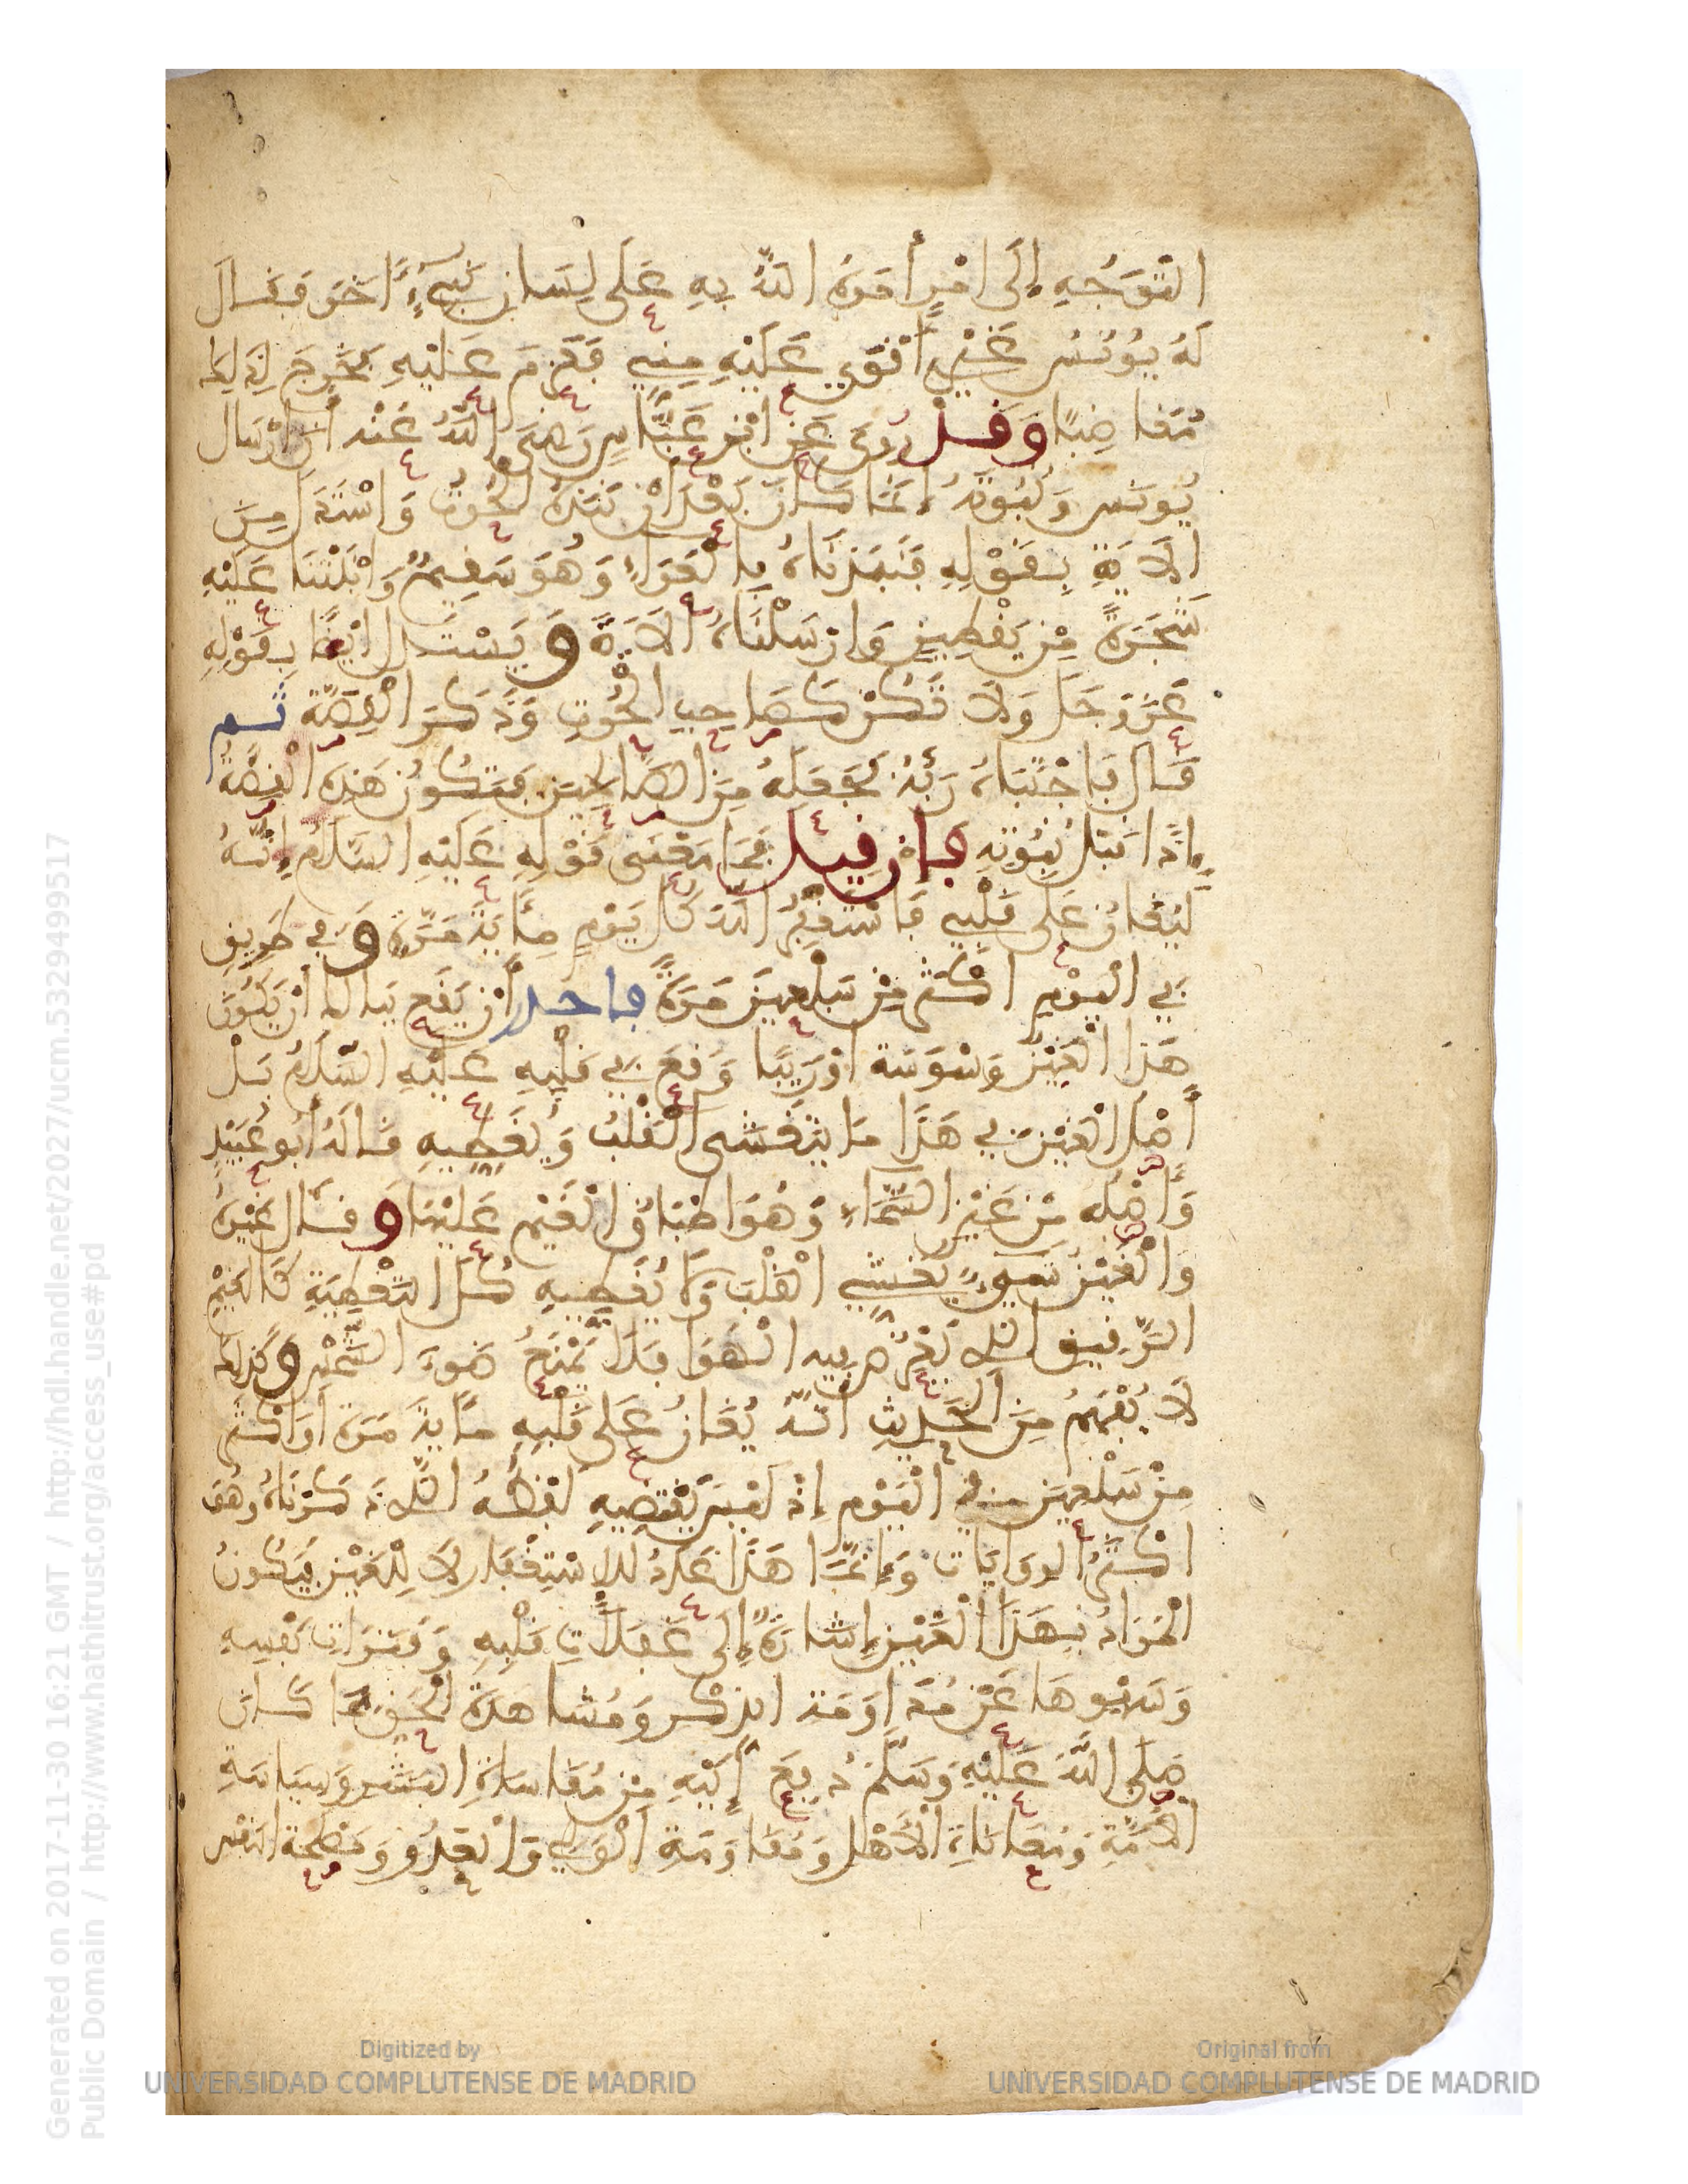 التَّوَجُّهِ إِلَى أَمْرٍ أَمَرَهُ اللَّهُ بِهِ عَلَى لِسَانِ نَبِيٍّ ءَاخَرَ فَقَالَ
لَهُ يُونُسُ غَيْرِي أَقْوَى عَلَيْهِ مِنِّي فَعَزَمَ عَلَيْهِ فَخَرَجَ لِذَلِكَ
مُغَاضِبًا وَقَدْ رُوِيَ عَنِ ابْنِ عَبَّاسٍ رَضِيَ اللَّهُ عَنْهُ أَنَّ إِرْسَالَ
يُونُسَ وَنُبُوَّتَهُ إِنَّمَا كَانَ بَعْدَ أَنْ نَبَذَهُ الْحُوتُ وَاسْتَدَلَّ مِنَ
الْآيَةِ بِقَوْلِهِ فَنَبَذْنَاهُ بِالْعَرَاءِ وَهُوَ سَقِيمٌ وَأَنْبَتْنَا عَلَيْهِ
شَجَرَةً مِنْ يَقْطِينٍ وَأَرْسَلْنَاهُ الْآيَةَ وَيُسْتَدَلُّ أَيْضًا بِقَوْلِهِ
عَزَّ وَجَلَّ وَلَا تَكُنْ كَصَاحِبِ الْحُوتِ وَذَكَرَ الْقِصَّةَ ثم
قَالَ فَاجْتَبَاهُ رَبُّهُ فَجَعَلَهُ مِنَ الصَّالِحِينَ فَتَكُونُ هَذِهِ الْقِصَّةُ
إِذًا قَبْلَ نُبُوَّتِهِ فَإِنْ قِيلَ فَمَا مَعْنَى قَوْلِهِ عَلَيْهِ السَّلَامُ إِنَّهُ
لَيُغَانُ عَلَى قَلْبِي فَأَسْتَغْفِرُ اللَّهَ كُلَّ يَوْمٍ مِائَةَ مَرَّةٍ وَفِي طَرِيقٍ
فِي الْيَوْمِ أَكْثَرَ مِنْ سَبْعِينَ مَرَّةً فاحذر أَنْ يَقَعَ بِبَالِكَ أَنْ يَكُونَ
هَذَا الْغَيْنُ وَسْوَسَةً أَوْ رَيْبًا وَقَعَ فِي قَلْبِهِ عَلَيْهِ السَّلَامُ بَلْ
أَصْلُ الْغَيْنِ فِي هَذَا مَا يَتَغَشَّى الْقَلْبَ وَيُغَطِّيهِ قَالَهُ أَبُو عُبَيْدٍ
وَأَصْلُهُ مِنْ غَيْنِ السَّمَاءِ وَهُوَ إِطْبَاقُ الْغَيْمِ عَلَيْهَا وَقَالَ غَيْرُهُ
وَالْغَيْنُ شَيْءٌ يُغَشِّي الْقَلْبَ وَلَا يُغَطِّيهِ كُلَّ التَّغْطِيَةِ كَالْغَيْمِ
الرَّقِيقِ الذي يَعْرِضُ فِي الْهَوَاءِ فَلَا يَمْنَعُ ضَوْءَ الشَّمْسِ وَكَذَلِكَ
لَا يُفْهَمُ مِنَ الْحَدِيثِ أَنَّهُ يُغَانُ عَلَى قَلْبِهِ مِائَةَ مَرَّةٍ أَوْ أَكْثَرَ
مِنْ سَبْعِينَ فِي الْيَوْمِ إِذْ لَيْسَ يَقْتَضِيهِ لَفْظُهُ الذي ذَكَرْنَاهُ وَهُوَ
أَكْثَرُ الروَايَاتِ وَإِنَّمَا هَذَا عَدَدٌ لِلِاسْتِغْفَارِ لَا لِلْغَيْنِ فَيَكُونُ
الْمُرَادُ بِهَذَا الْغَيْنِ إِشَارَةً إِلَى غَفَلَاتِ قَلْبِهِ وَفَتَرَاتِ نَفْسِهِ
وَسَهْوِهَا عَنْ مُدَاوَمَةِ الذِّكْرِ وَمُشَاهَدَةِ الْحَقِّ بِمَا كَانَ
صَلَّى اللَّهُ عَلَيْهِ وَسَلَّمَ دُفِعَ إِلَيْهِ مِنْ مُقَاسَاةِ الْبَشَرِ وَسِيَاسَةِ
الْأُمَّةِ وَمُعَانَاةِ الْأَهْلِ وَمُقَاوَمَةِ الْوَلِيِّ وَالْعَدُوِّ وَمَصْلَحَةِ النَّفْسِ
Generated on 2017-11-30 16:21 GMT / http://hdl.handle.net/2027/ucm.5329499517
Public Domain / http://www.hathitrust.org/access_use#pd
Digitized by UNIVERSIDAD COMPLUTENSE DE MADRID
Original from UNIVERSIDAD COMPLUTENSE DE MADRID